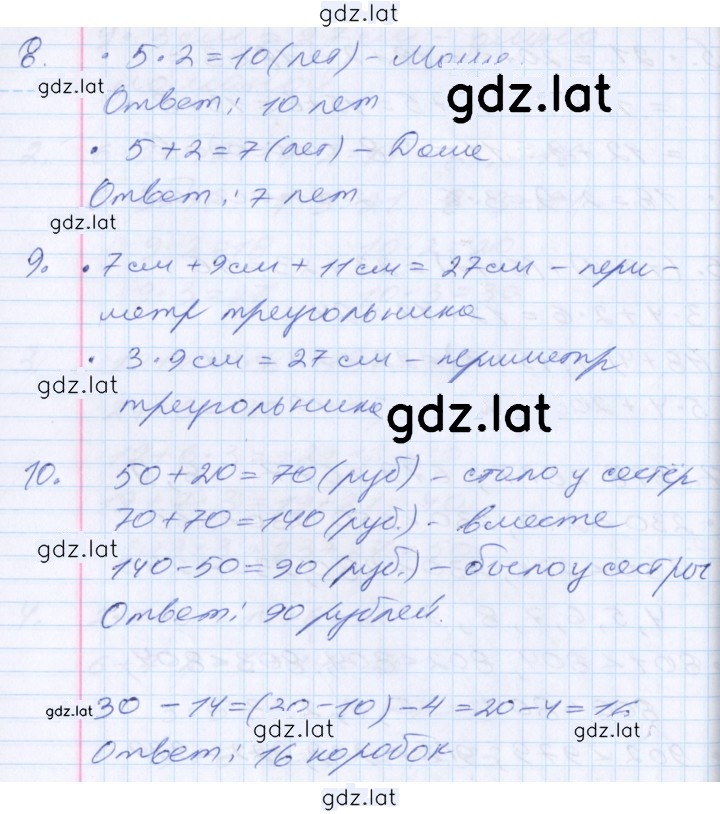 gdz.lat
8. • 5 · 2 = 10 (лет) – Маше.
gdz.lat
Ответ: 10 лет
gdz.lat
• 5 + 2 = 7 (лет) – Даше
Ответ: 7 лет
gdz.lat
9. • 7 см + 9 см + 11 см = 27 см – пери-
метр треугольника
• 3 · 9 см = 27 см – периметр
gdz.lat
треугольника
gdz.lat
10. 50 + 20 = 70 (руб) – стало у сестёр
70 + 70 = 140 (руб.) – вместе
gdz.lat
140 – 50 = 90 (руб.) – было у сестры
Ответ: 90 рублей.
gdz.lat
30 – 14 = (20 – 10) – 4 = 20 – 4 = 16
gdz.lat
gdz.lat
Ответ: 16 коробок
gdz.lat